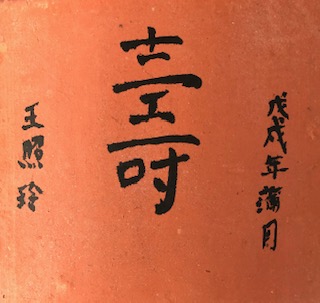 戊戌年蒲月
壽
王照玲